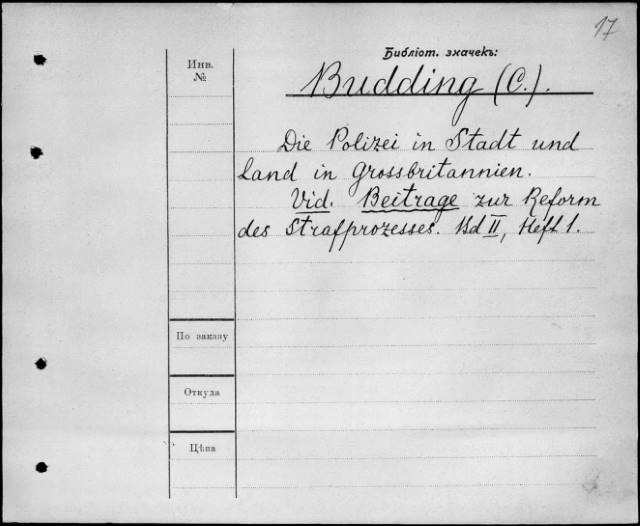 17
Библіот. значекъ:
Инв.
№
Budding (C.).
Die Polizei in Stadt und
Land in Grossbritannien.
Vid. Beitrage zur Reform
des Strafprozesses. Bd II, Heft 1.
По заказу
Откуда
Цѣна